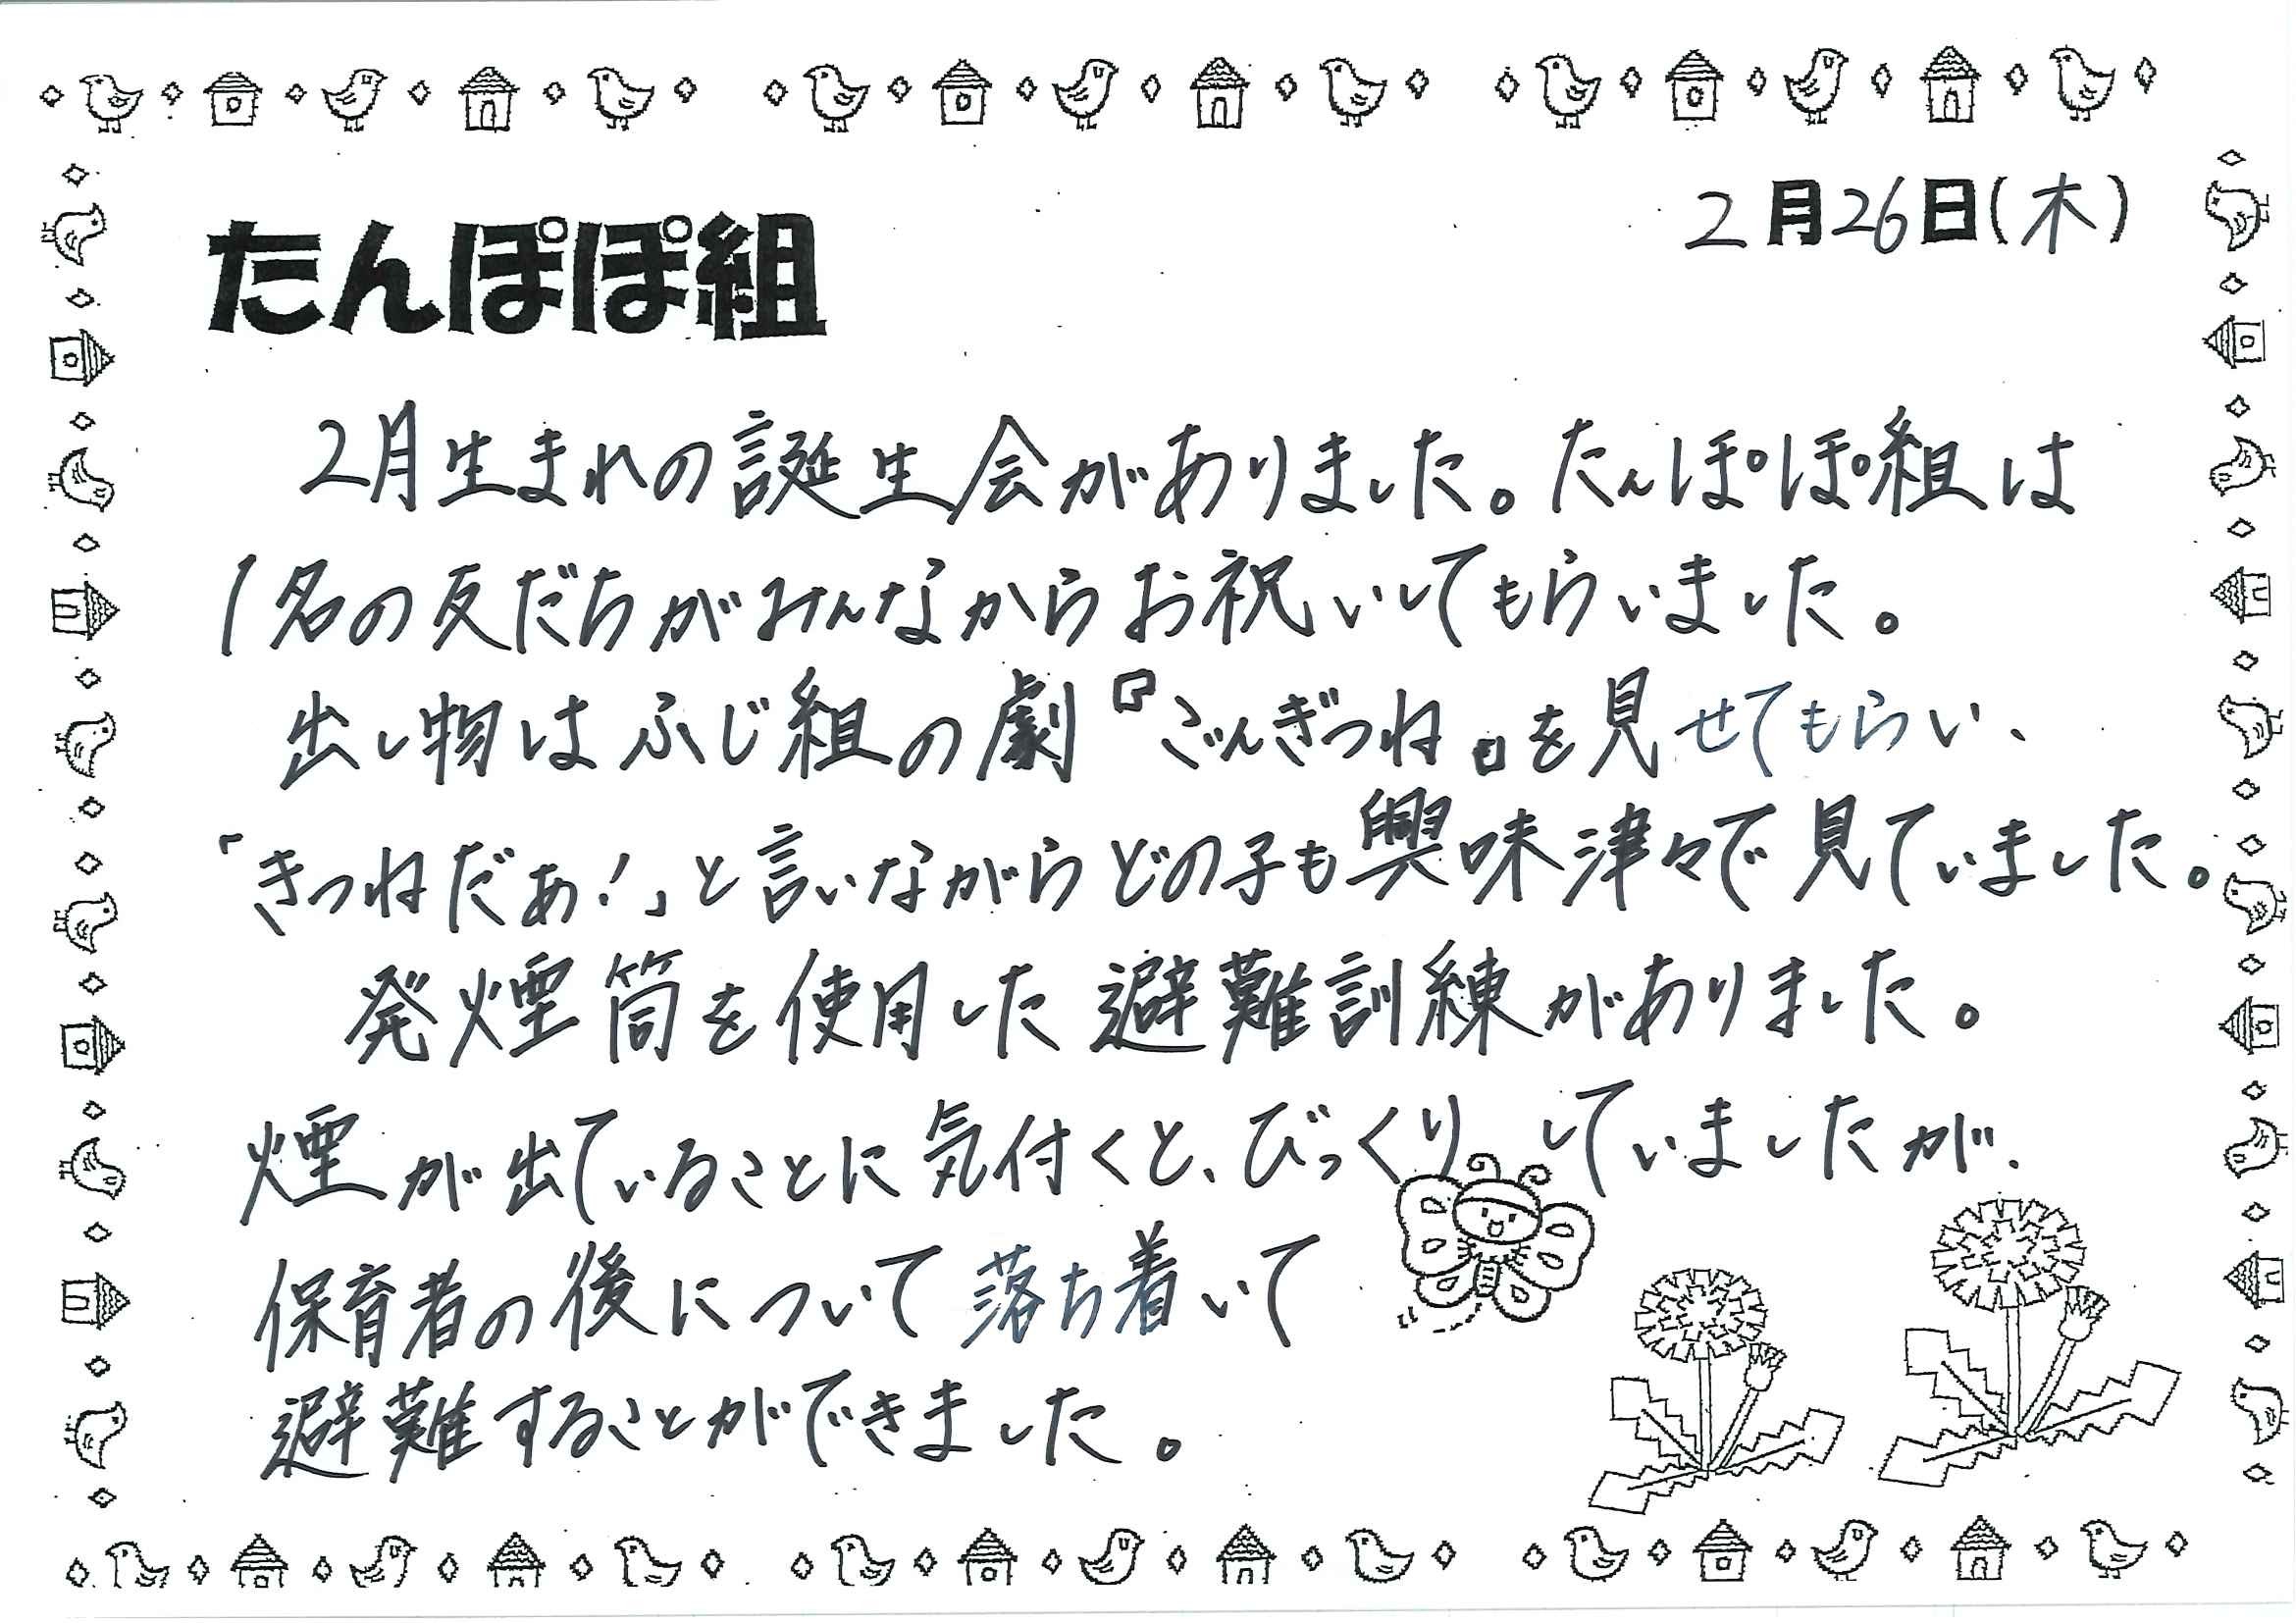 2月26日(木)
たんぽぽ組
2月生まれの誕生会がありました。たんぽぽ組は
1名の友だちがみんなからお祝いしてもらいました。
出し物はふじ組の劇『ごんぎつね』を見せてもらい、
「きつねだぁ！」と言いながらどの子も興味津々で見ていました。
発煙筒を使用した避難訓練がありました。
煙が出ていることに気付くと、びっくりしていましたが、
保育者の後について落ち着いて
避難することができました。